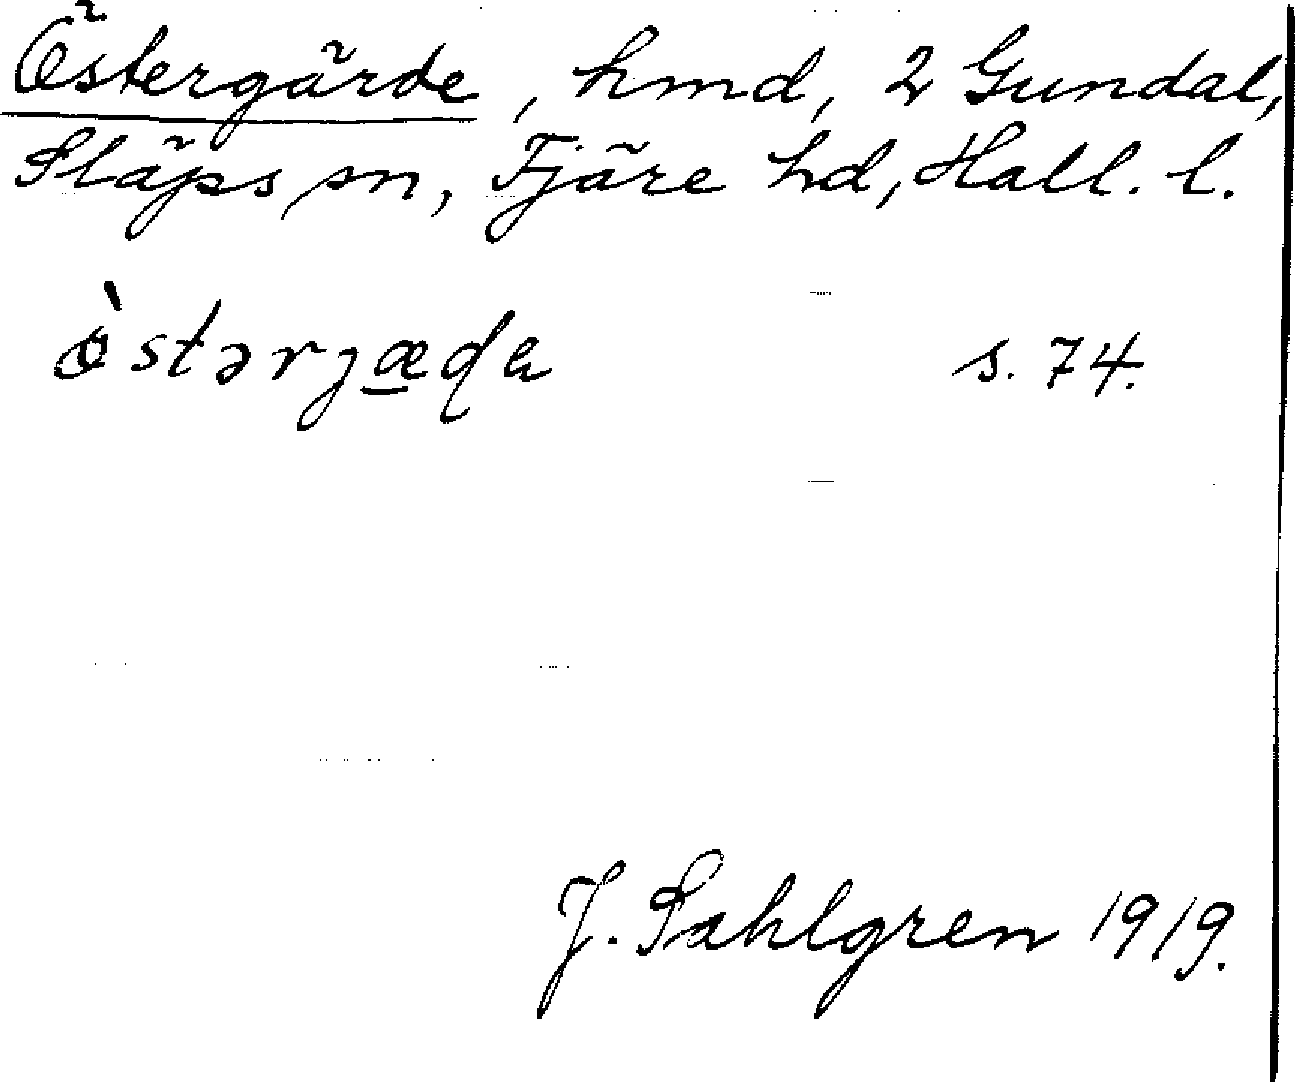 Östergärde, hmd, 2 Gundal,
Släps sn, Fjäre hd, Hall. l.
s. 74.
J. Sahlgren 1919.